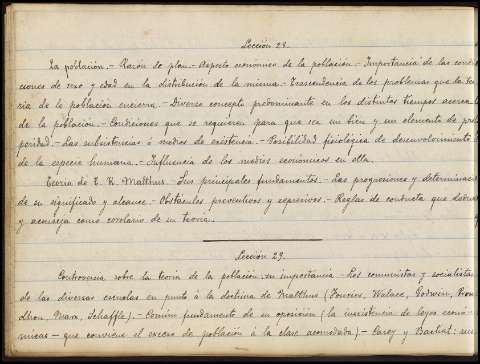 Lección 28.
La población.- Razón de plan.- Aspecto económico de la población.- Importancia de las condi-
ciones de sexo y edad en la distribución de la misma.- Trascendencia de los problemas que la teo-
ría de la población encierra.- Diverso concepto predominante en los distintos tiempos acerca
de la población.- Condiciones que se requieren para que sea un bien y un elemento de pros-
peridad.- Las subsistencias ó medios de existencia.- Posibilidad fisiológica de desenvolvimiento
de la especie humana.- Influencia de los medios económicos en ella.
Teoría de T. R. Malthus.- Sus principales fundamentos.- Las progresiones y determinación
de su significado y alcance.- Obstáculos preventivos y represivos.- Reglas de conducta que
y aconseja como corolario de su teoría.
Lección 29.
Controversia sobre la teoría de la población: su importancia.- Los comunistas y socialistas
de las diversas escuelas en punto á la doctrina de Malthus (Fourier, Walace, Godwin, Prou-
dhon, Marx, Schaffle).- Común fundamento de su oposición (la inexistencia de leyes econó-
micas - que conviene el exceso de población á la clase acomodada).- Carey y Bastiat: sus